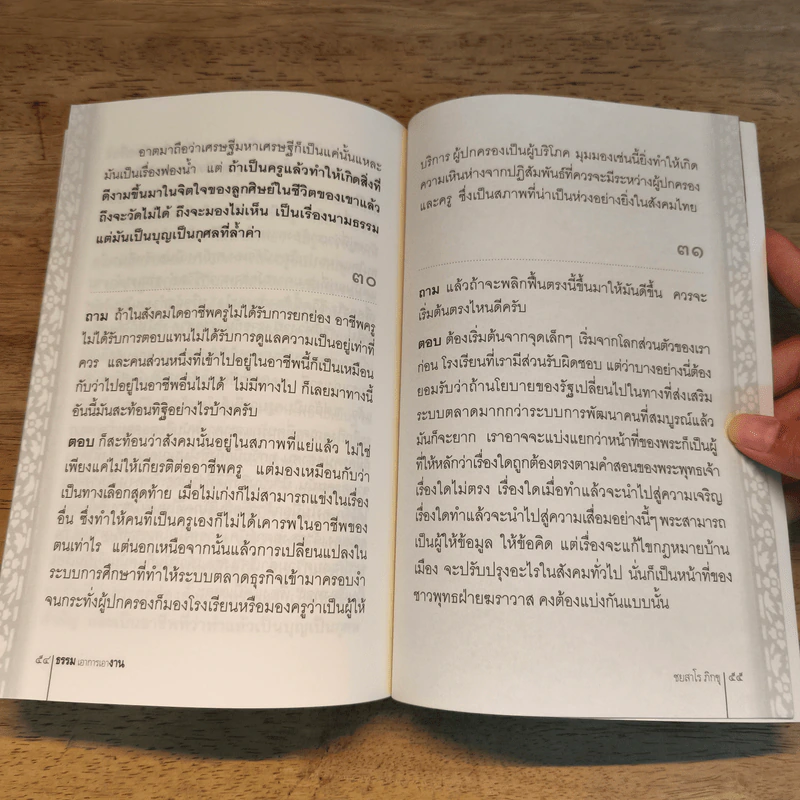 อาตมาถือว่าเศรษฐีมหาเศรษฐีก็เป็นแค่นั้นแหละ
มันเป็นเรื่องฟองน้ำ แต่ ถ้าเป็นครูแล้วทำให้เกิดสิ่งที่
ดีงามขึ้นมาในจิตใจของลูกศิษย์ในชีวิตของเขาแล้ว
ถึงจะวัดไม่ได้ ถึงจะมองไม่เห็น เป็นเรื่องนามธรรม
แต่มันเป็นบุญเป็นกุศลที่ล้ำค่า
๓๐
ถาม ถ้าในสังคมใดอาชีพครูไม่ได้รับการยกย่อง อาชีพครู
ไม่ได้รับการตอบแทนไม่ได้รับการดูแลความเป็นอยู่เท่าที่
ควร และคนส่วนหนึ่งที่เข้าไปอยู่ในอาชีพนี้ก็เป็นเหมือน
กับว่าไปอยู่ในอาชีพอื่นไม่ได้ ไม่มีทางไป ก็เลยมาทางนี้
อันนี้มันสะท้อนทิฐิอย่างไรบ้างครับ
ตอบ ก็สะท้อนว่าสังคมนั้นอยู่ในสภาพที่แย่แล้ว ไม่ใช่
เพียงแค่ไม่ให้เกียรติต่ออาชีพครู แต่มองเหมือนกับว่า
เป็นทางเลือกสุดท้าย เมื่อไม่เก่งก็ไม่สามารถแข่งในเรื่อง
อื่น ซึ่งทำให้คนที่เป็นครูเองก็ไม่ได้เคารพในอาชีพของ
ตนเท่าไร แต่นอกเหนือจากนั้นแล้วการเปลี่ยนแปลงใน
ระบบการศึกษาที่ทำให้ระบบตลาดธุรกิจเข้ามาครอบงำ
จนกระทั่งผู้ปกครองก็มองโรงเรียนหรือมองครูว่าเป็นผู้ให้
๕๔ ธรรม เอาการเอางาน
บริการ ผู้ปกครองเป็นผู้บริโภค มุมมองเช่นนี้ยิ่งทำให้เกิด
ความเหินห่างจากปฏิสัมพันธ์ที่ควรจะมีระหว่างผู้ปกครอง
และครู ซึ่งเป็นสภาพที่น่าเป็นห่วงอย่างยิ่งในสังคมไทย
๓๑
ถาม แล้วถ้าจะพลิกฟื้นตรงนี้ขึ้นมาให้มันดีขึ้น ควรจะ
เริ่มต้นตรงไหนดีครับ
ตอบ ต้องเริ่มต้นจากจุดเล็กๆ เริ่มจากโลกส่วนตัวของเรา
ก่อน โรงเรียนที่เรามีส่วนรับผิดชอบ แต่ว่าบางอย่างนี้ต้อง
ยอมรับว่าถ้านโยบายของรัฐเปลี่ยนไปในทางที่ส่งเสริม
ระบบตลาดมากกว่าระบบการพัฒนาคนที่สมบูรณ์แล้ว
มันก็จะยาก เราอาจจะแบ่งแยกว่าหน้าที่ของพระก็เป็นผู้
ที่ให้หลักว่าเรื่องใดถูกต้องตรงตามคำสอนของพระพุทธเจ้า
เรื่องใดไม่ตรง เรื่องใดเมื่อทำแล้วจะนำไปสู่ความเจริญ
เรื่องใดทำแล้วจะนำไปสู่ความเสื่อมอย่างนี้ๆ พระสามารถ
เป็นผู้ให้ข้อมูล ให้ข้อคิด แต่เรื่องจะแก้ไขกฎหมายบ้าน
เมือง จะปรับปรุงอะไรในสังคมทั่วไป นั่นก็เป็นหน้าที่ของ
ชาวพุทธฝ่ายฆราวาส คงต้องแบ่งกันแบบนั้น
ชยสาโร ภิกขุ ๕๕